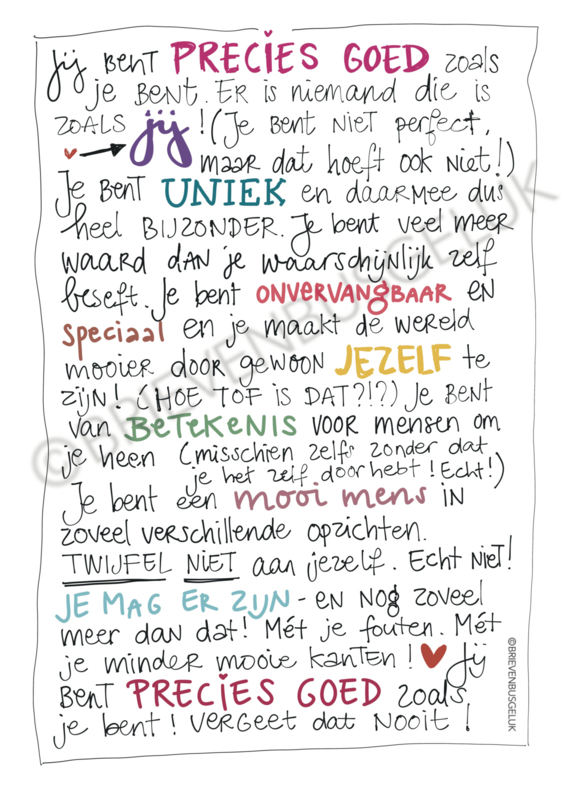 Jij BENT PRECIES GOED zoals
je BENT. ER is niemand die is
ZOALS jij! (Je BENT NIET perfect,
maar dat hoeft ook niet!)
Je BENT UNIEK en daarmee dus
heel BIJZONDER. Je bent veel meer
WAARD DAN je waarschijnlijk zelf
beseft. Je bent ONVERVANGBAAR EN
speciaal en je maakt de wereld
mooier door gewoon JEZELF te
zijn! (HOE TOF is DAT?!?) Je BENT
van BETEKENIS voor mensen om
je heen (misschien zelfs zonder dat
je het zelf doorhebt! Echt!)
Je bent een mooi mens in
zoveel verschillende opzichten.
TWIJFEL NIET aan jezelf. Echt NIET!
JE MAG ER ZIJN - EN NOg zoveel
meer dan dat! Mét je fouten. Mét
je minder mooie kanten! Jij
BENT PRECIES GOED zoals
je bent! VERGEET dat NOOIT!
©BRIEVENBUSGELUK
©BRIEVENBUSGELUK